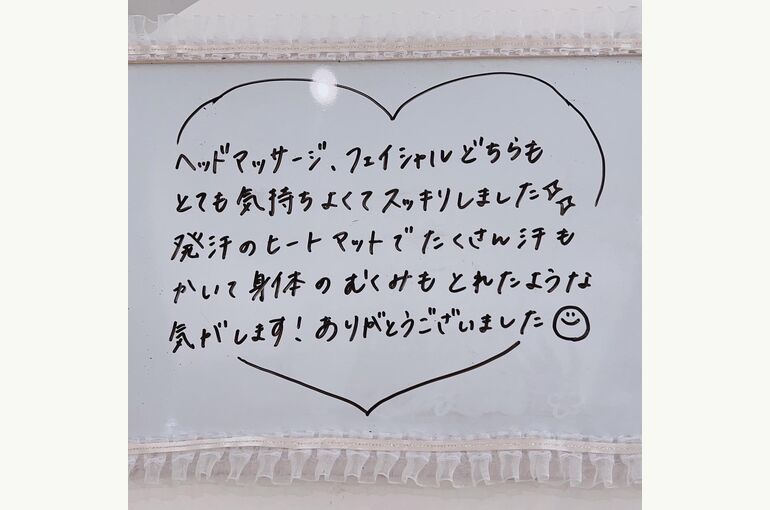 ヘッドマッサージ、フェイシャルどちらも
とても気持ちよくてスッキリしました☆☆
発汗のヒートマットでたくさん汗も
かいて身体のむくみもとれたような
気がします!ありがとうございました☺